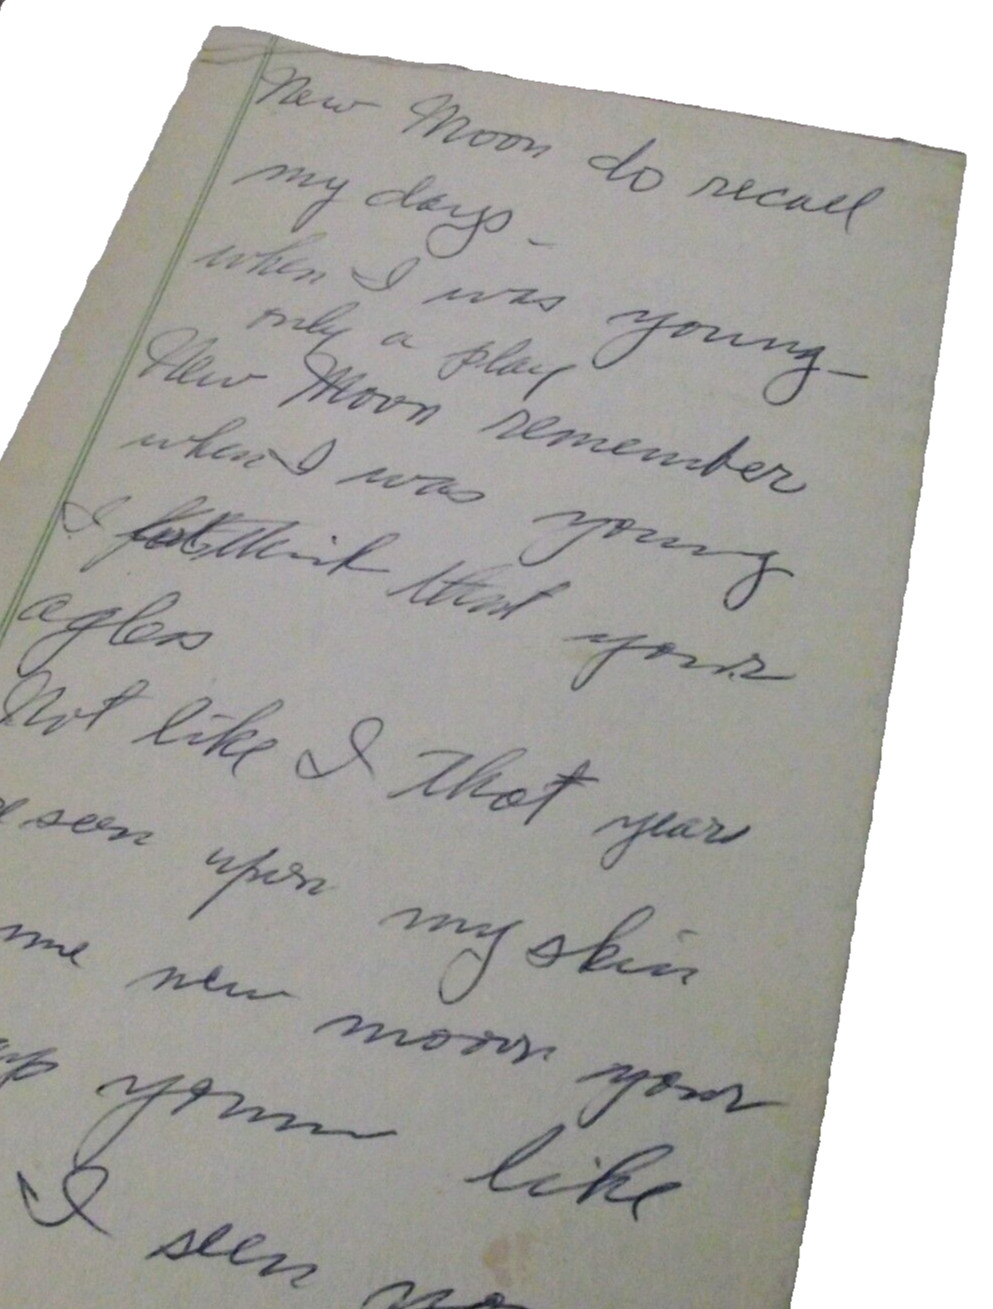 New Moon do recall
my days -
when I was young -
only a play
New Moon remember
when I was young
I think that your
agless
Not like I that years
seen upon my skin
me new moon your
up young like
I seen